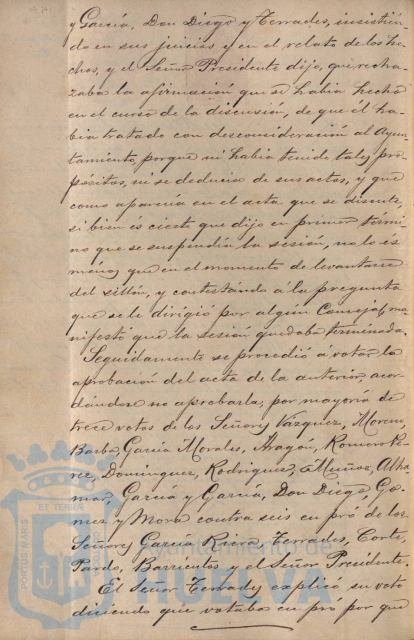 y García, Don Diego y Terrades, insistien-
do en sus juicios y en el relato de los he-
chos, y el Señor Presidente dijo, que recha-
zaba la afirmación que se había hecho
en el curso de la discusión, de que él ha-
bía tratado con desconsideración al Ayun-
tamiento, porque ni había tenido tales pro-
pósitos, ni se deducía de sus actos, y que
como aparecía en el acta que se discute,
si bien es cierto que dijo en primer térmi-
no que se suspendía la sesión, no lo es
menos que en el momento de levantarse
del sillón, y contestando á la pregunta
que se le dirigió por algún Concejal, ma-
nifestó que la sesión quedaba terminada.
Seguidamente se procedió a votar la
aprobación del acta de la anterior, acor-
dándose no aprobarla, por mayoría de
trece votos de los Señores Vázquez, Moreno,
Barba, García Morales, Aragón, Romero Pe-
rez, Domínguez, Rodríguez, Muñoz, Alha-
mar, García y García, Don Diego, Gó-
mez y Mora contra seis en pró de los
Señores García Riera, Terrades, Corte,
Pardo, Barrientos y el Señor Presidente.
El Señor Terrades explicó su voto
diciendo que votaba en pro por que
PORTUS MARIS
ET TERRAE
Ayuntamiento de
HUELVA